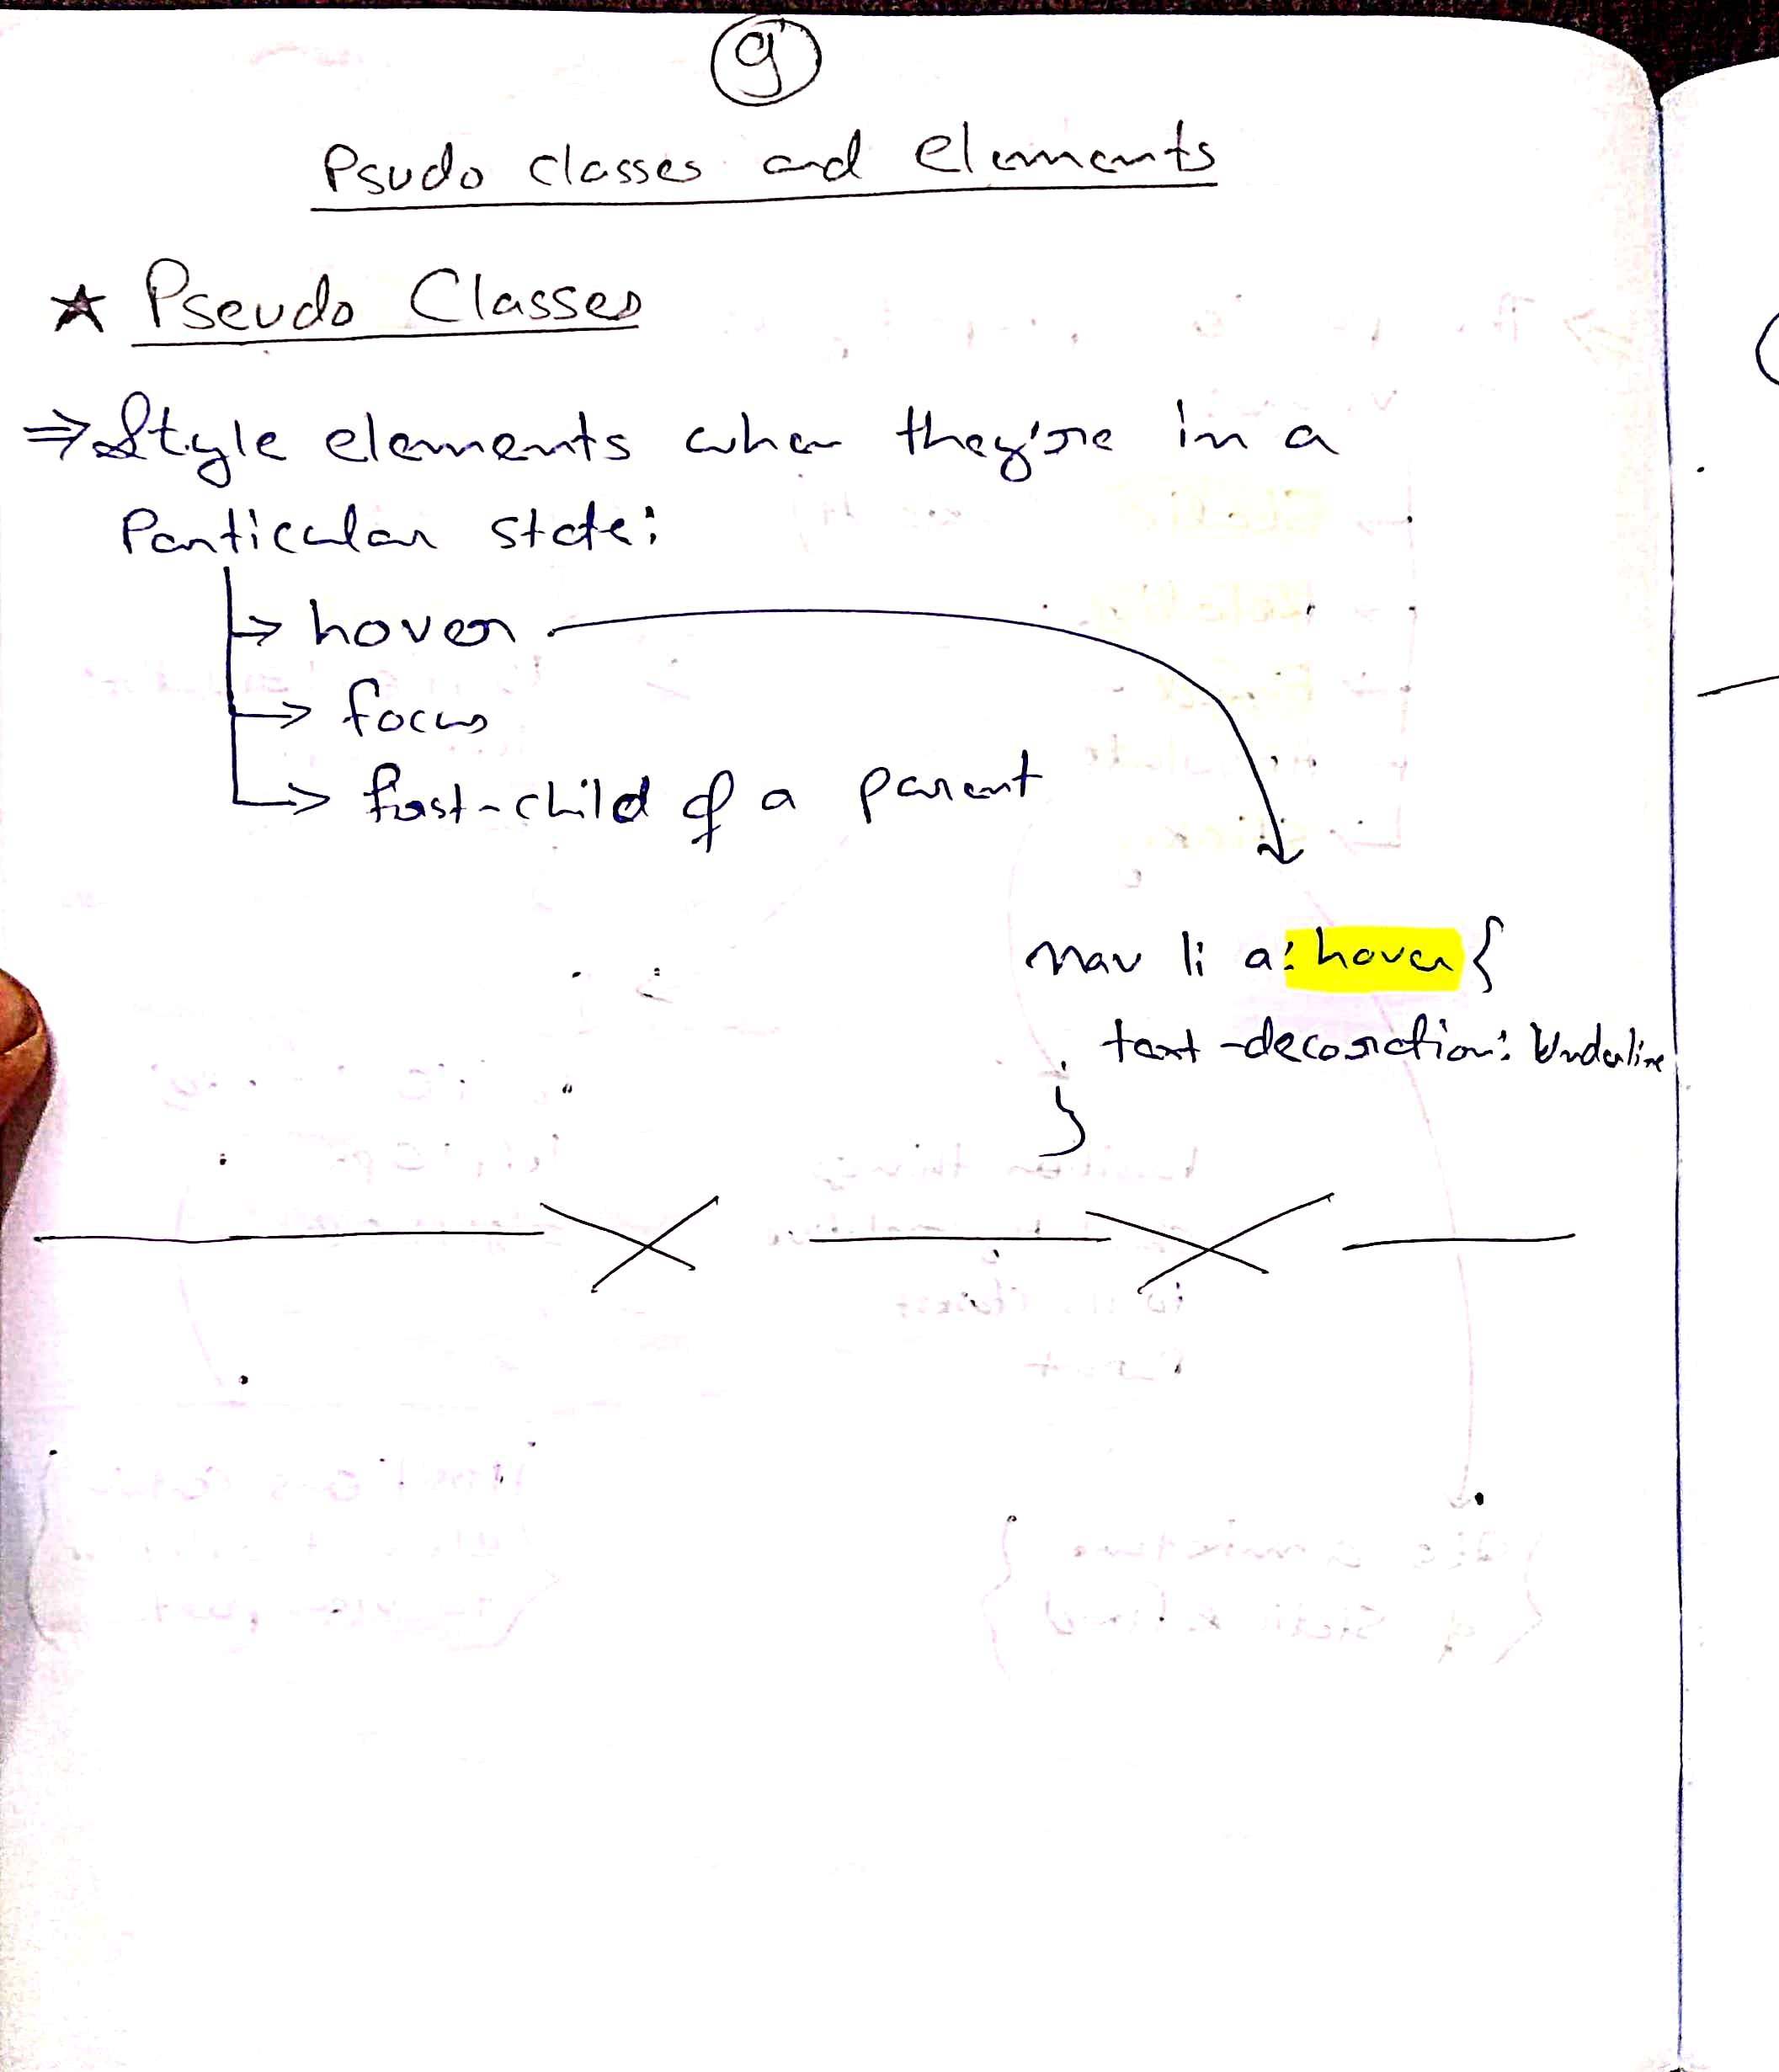 9
Psudo classes and elements
★ Pseudo Classes
⇒ Style elements when they're in a
Particular state:
→ hover
→ focus
→ first-child of a parent
nav li a:hover {
text-decoration: Underline
}